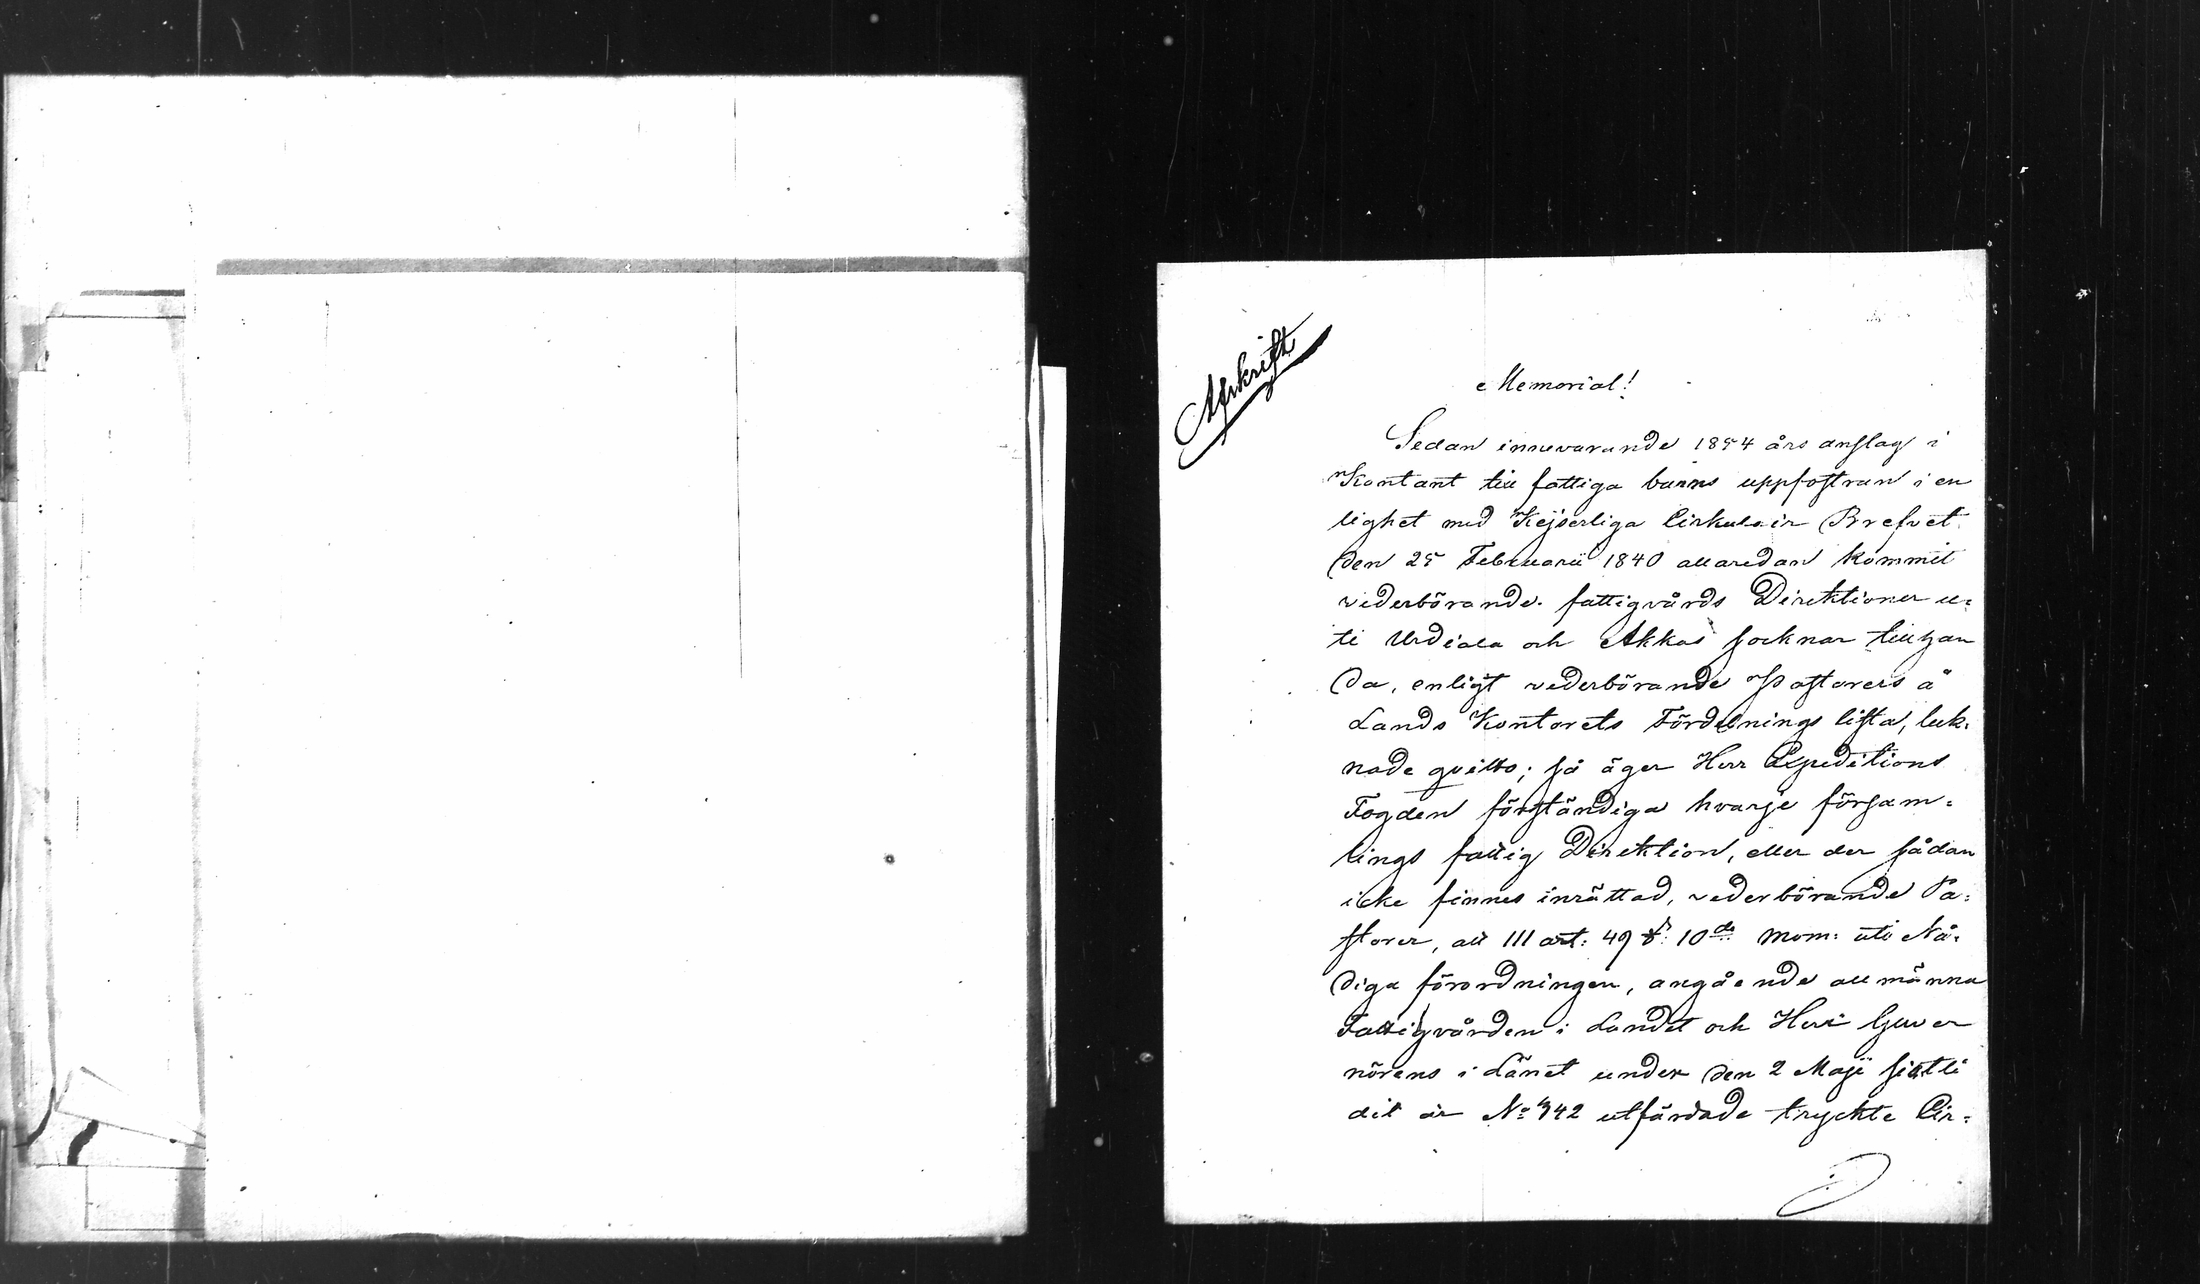 Afskrift
Memorial!
Sedan innevarande 1854 års anslag i
Kontant till fattiga barns uppfostran i en
lighet med Kejserliga Cirkulair Brefvet
den 25 Februarii 1840 allaredan kommit
vederbörande fattigvårds Direktioner u=
ti Urdiala och Akkas socknar tillhan
da, enligt vederbörande Pastorers å
Lands Kontorets Fördelnings lista, teck=
nade qvitto; så äger Herr Expeditions
Fogden förständiga hvarje församm=
lings fattig Direktion, eller der sådan
icke finnes inrättad, vederbörande Pa=
storer, att III art: 49 §: 10de Mom: uti Nå=
diga förordningen, angående allmänna
Fattigvården i Landet och Herr Guver
nörens i Länet under den 2 Maji sistli
dit år No 342 utfärdade tryckte Cir=